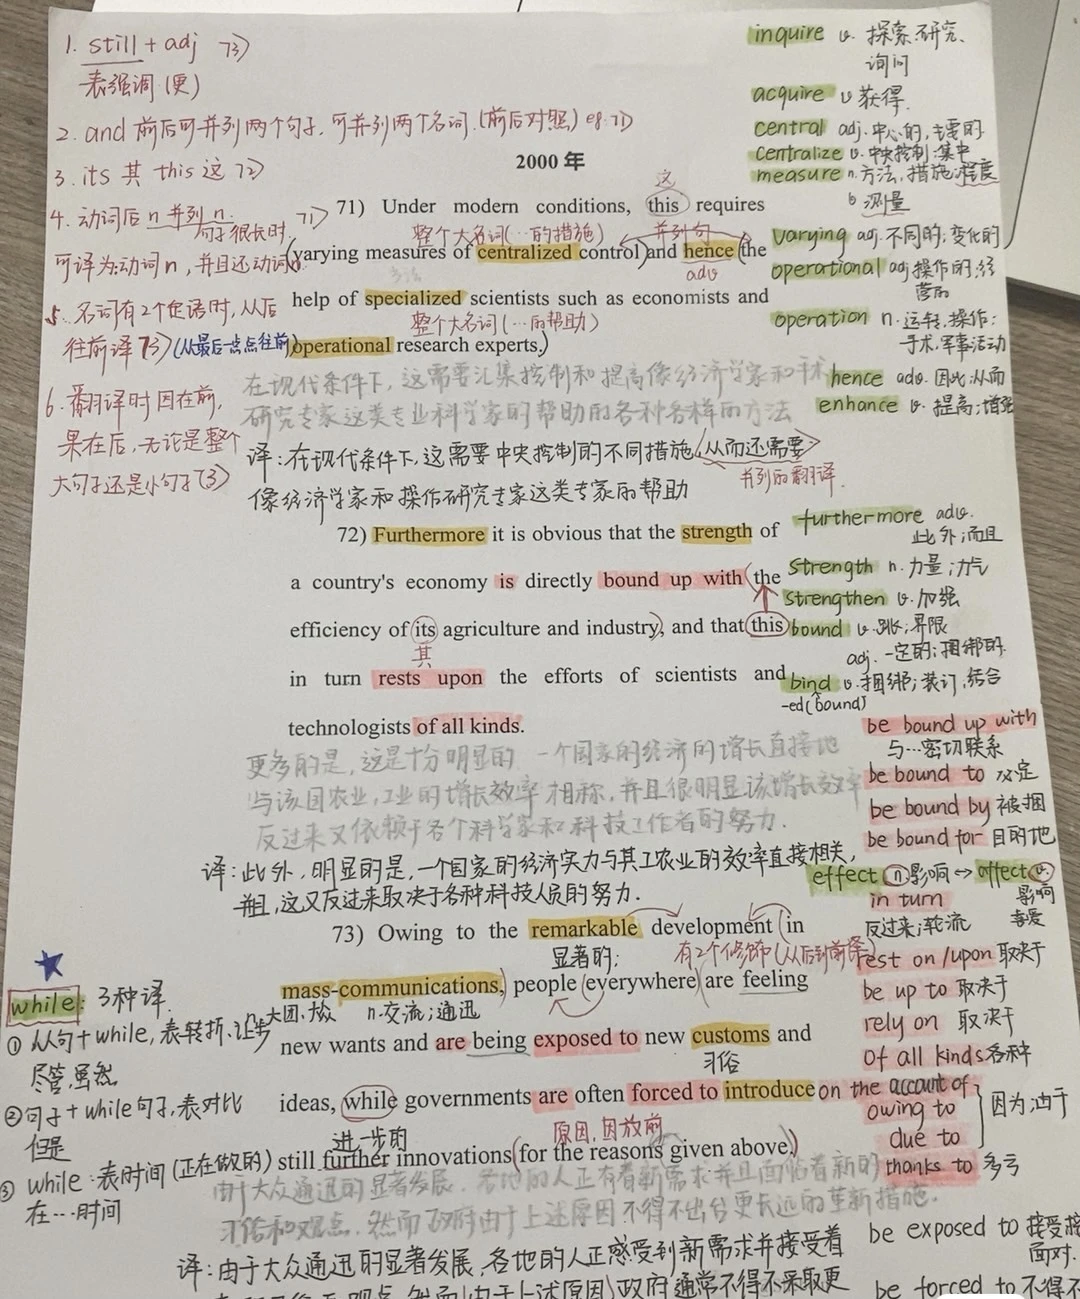 1. still + adj 73)
表强调(更)
2. and 前后可并列两个句子,可并列两个名词.(前后对照) eg.71)
3. its 其 this 这 72)
4. 动词后 n 并列 n. 71)
句子很长时,
可译为动词 n, 并且还动词 n
5. 名词有2个定语时,从后
往前译 73) (从最后一点点往前)
6. 翻译时因在前,
果在后,无论是整个
大句子还是小句子 73)
2000 年
这
71) Under modern conditions, this requires
整个大名词(…的措施) 并列句
(varying measures of centralized control) and hence (the
adv
help of specialized scientists such as economists and
整个大名词(…的帮助)
operational research experts.)
在现代条件下,这需要汇集控制和提高像经济学家和手术
研究专家这类专业科学家的帮助的各种各样的方法
译:在现代条件下,这需要中央控制的不同措施(从而还需要)
并列的翻译.
像经济学家和操作研究专家这类专家的帮助
72) Furthermore it is obvious that the strength of
a country's economy is directly bound up with (the
efficiency of its agriculture and industry), and that this
其
in turn rests upon the efforts of scientists and
technologists of all kinds.
更多的是,这是十分明显的 一个国家的经济的增长直接地
与该国农业,工业的增长效率相称,并且很明显该增长效率
反过来又依赖于各个科学家和科技工作者的努力.
译:此外,明显的是,一个国家的经济实力与其工农业的效率直接相关,
并且,这又反过来取决于各种科技人员的努力.
73) Owing to the remarkable development (in
显著的; 有2个修饰(从后到前译)
mass-communications,) people (everywhere) are feeling
大团.放 n.交流;通迅
new wants and are being exposed to new customs and
习俗
ideas, while governments are often forced to introduce
进一步的 原因,因放前
still further innovations (for the reasons given above.)
由于大众通迅的显著发展,各地的人正有着新需求并且面临着新的
习俗和观点,然而政府由于上述原因不得不出台更长远的革新措施.
译:由于大众通迅的显著发展,各地的人正感受到新需求并接受着
while: 3种译.
① 从句+while,表转折.让步
尽管,虽然
② 句子+while句子,表对比
但是
③ while:表时间(正在做的)
在…时间
inquire v. 探索.研究、
询问
acquire v 获得.
central adj.中心的,主要的
centralize v.中央控制;集中
measure n.方法,措施;程度
v 测量
varying adj.不同的;变化的
operational adj操作的;经
营的
operation n.运转,操作;
手术,军事活动
hence adv. 因此;从而
enhance v. 提高;增强
furthermore adv.
此外;而且
strength n.力量;力气
strengthen v.加强
bound v.跳;界限
adj.一定的;捆绑的.
bind v.捆绑;装订,结合
-ed(bound)
be bound up with
与…密切联系
be bound to 必定
be bound by 被捆
be bound for 目的地
effect n影响 ↔ affect v.
影响
in turn
反过来;轮流
rest on/upon 取决于
be up to 取决于
rely on 取决于
of all kinds各种
on the account of
owing to
due to
因为;由于
thanks to 多亏
be exposed to 接受
面对.
be forced to 不得不